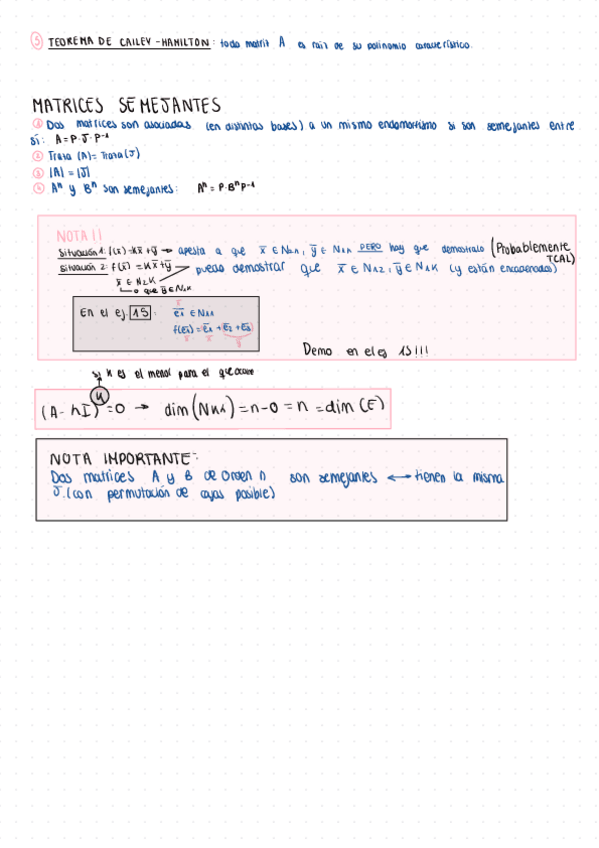 5 TEOREMA DE CAILEY-HAMILTON: toda matriz A es raíz de su polinomio característico.
MATRICES SEMEJANTES
1 Dos matrices son asociadas (en distintas bases) a un mismo endomorfismo si son semejantes entre
sí: A=P·J·P⁻¹
2 Traza (A)= Traza(J)
3 |A| = |J|
4 Aⁿ y Bⁿ son semejantes: Aⁿ = P·BⁿP⁻¹
NOTA!!
Situación 1: f(x̄)=kx̄+ȳ → apesta a que x̄ ∈ Nλ1, ȳ ∈ Nλ1 PERO hay que demostralo (Probablemente
TCAL)
Situación 2: f(x̄) = kx̄+ȳ puedo demostrar que x̄ ∈ Nλ2, ȳ ∈ N1k (y están encadenados)
x̄ ∈ N2k
o que ȳ ∈ N1k
En el ej. 15: e̅1 ∈ Nλ1
f(e̅1) = e̅1 + e̅2 + e̅3
x̄ x̄ ȳ
Demo en el ej 15!!!
si k es el menor para el que ocurre
(A-λI)ᵏ=0 → dim(Nkλ)=n-0=n=dim(E)
NOTA IMPORTANTE:
Dos matrices A y B de orden n son semejantes ↔ tienen la misma
J. (con permutación de cajas posible)